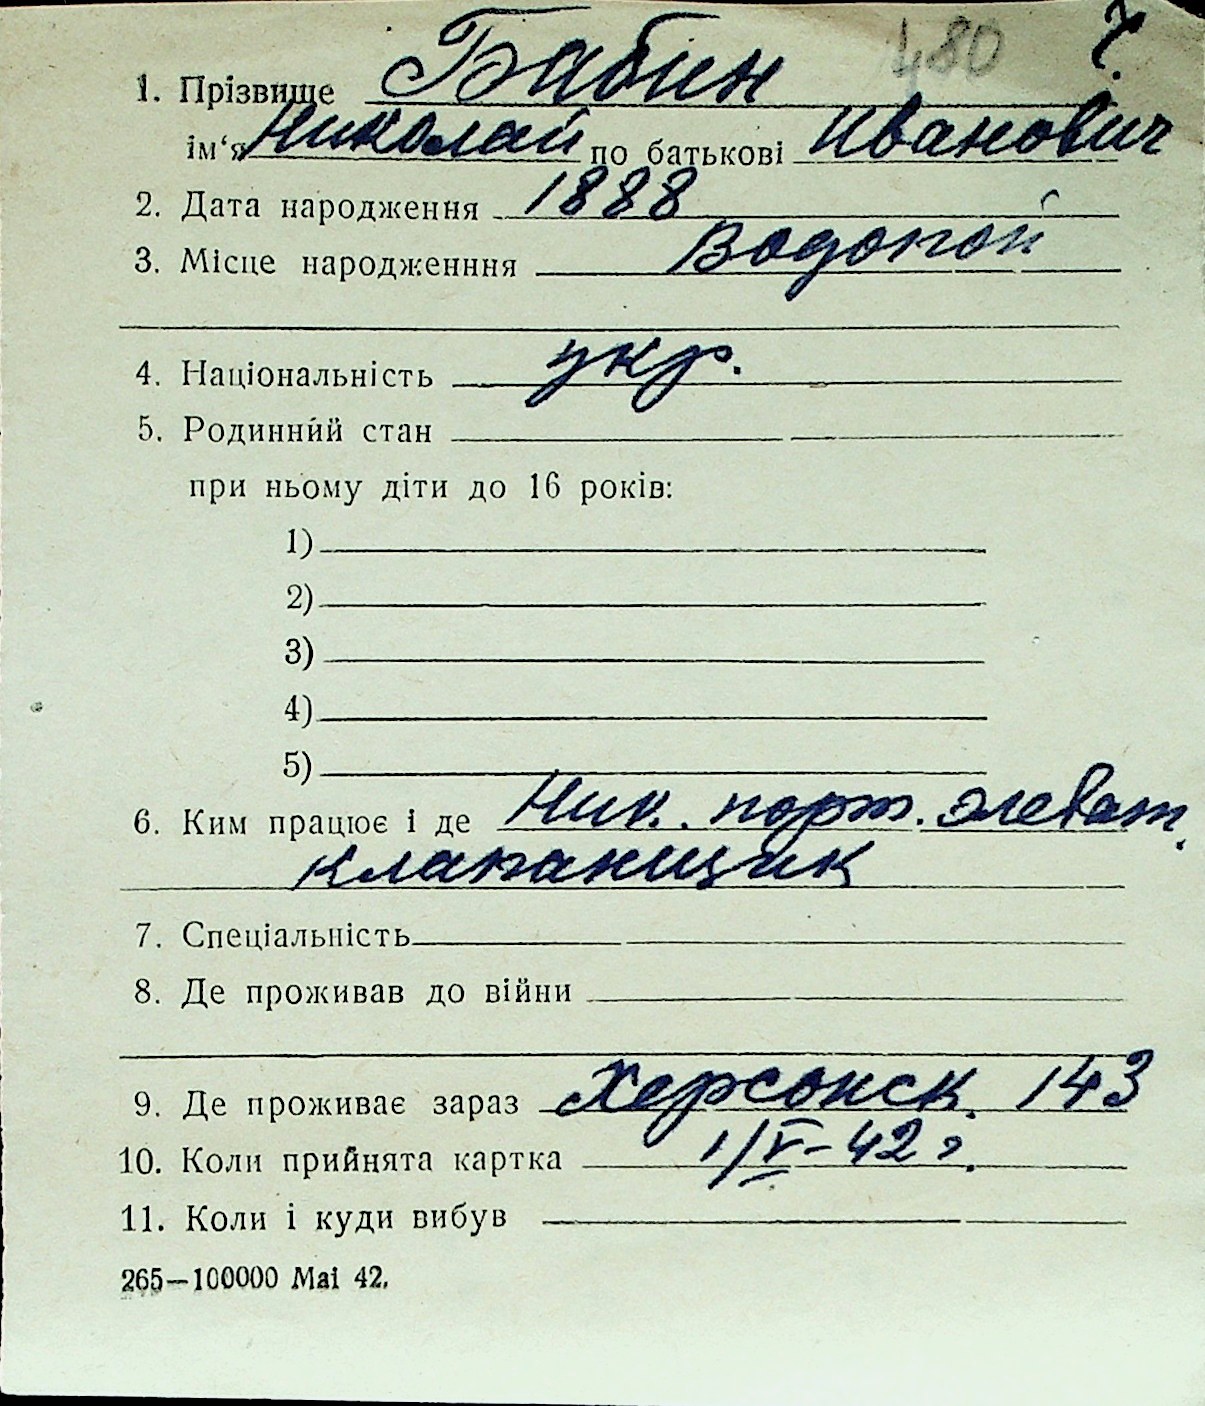 480 Ч.
1. Прізвище Бабин
ім‘я Николай по батькові Иванович
2. Дата народження 1888
3. Місце народженння Водопой
4. Національність укр.
5. Родинний стан
при ньому діти до 16 років:
1)
2)
3)
4)
5)
6. Ким працює і де Ник. порт. элеват.
клапанщик
7. Спеціальність
8. Де проживав до війни
9. Де проживає зараз Херсонск. 143
10. Коли прийнята картка 1/V-42 г.
11. Коли і куди вибув
265—100000 Mai 42.